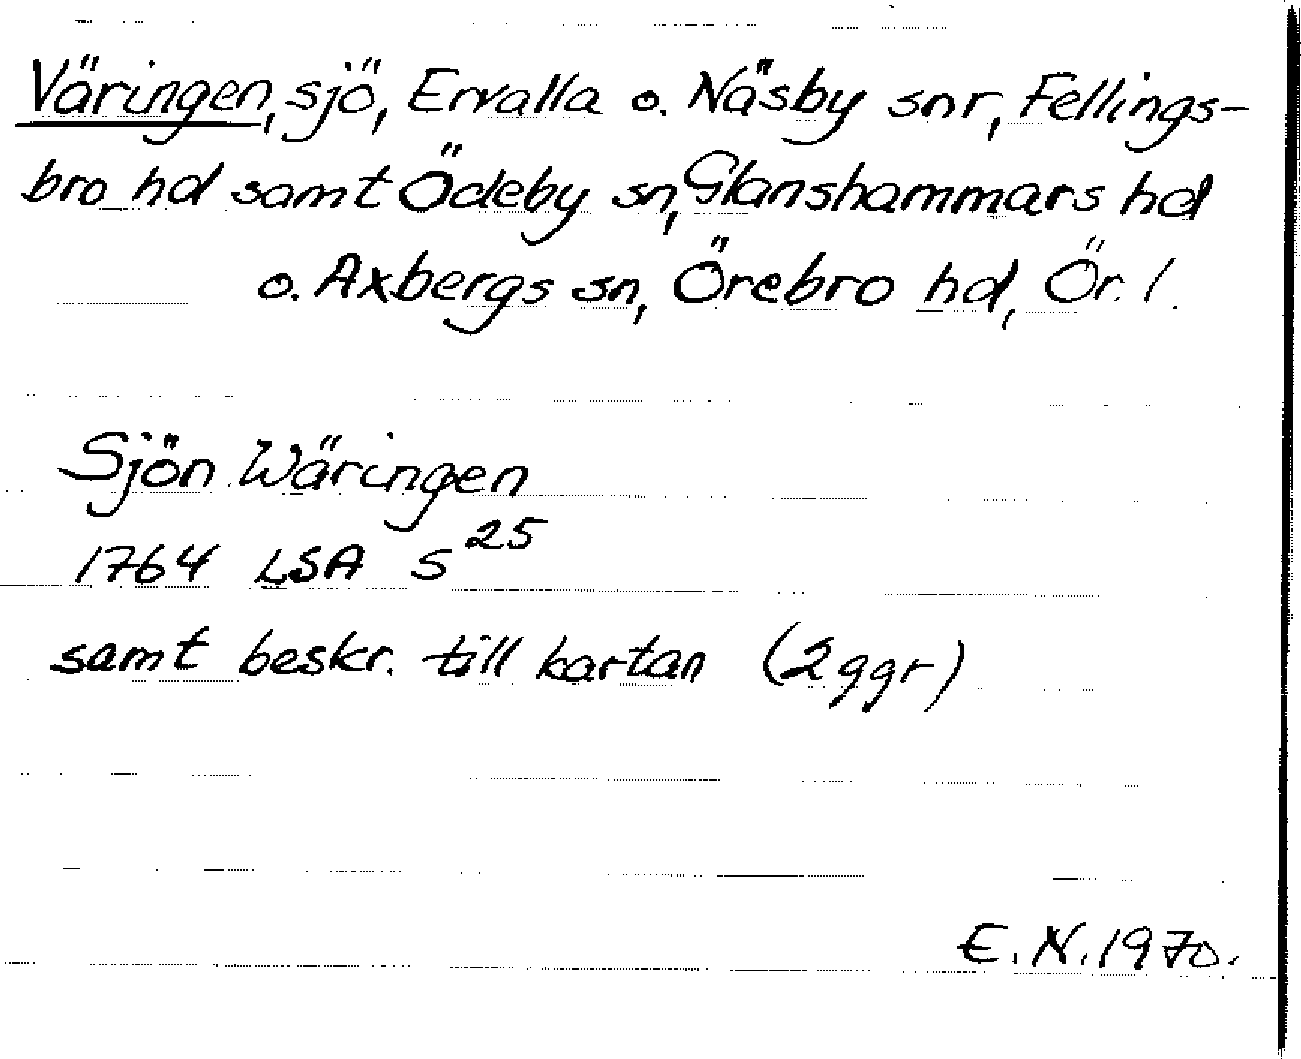 Väringen, sjö, Ervalla o. Näsby snr, Fellings-
bro hd samt Ödeby sn, Glanshammars hd
o. Axbergs sn, Örebro hd, Ör. l.
Sjön Wäringen
1764 LSA S 25
samt beskr. till kartan (2 ggr)
E. N. 1970.